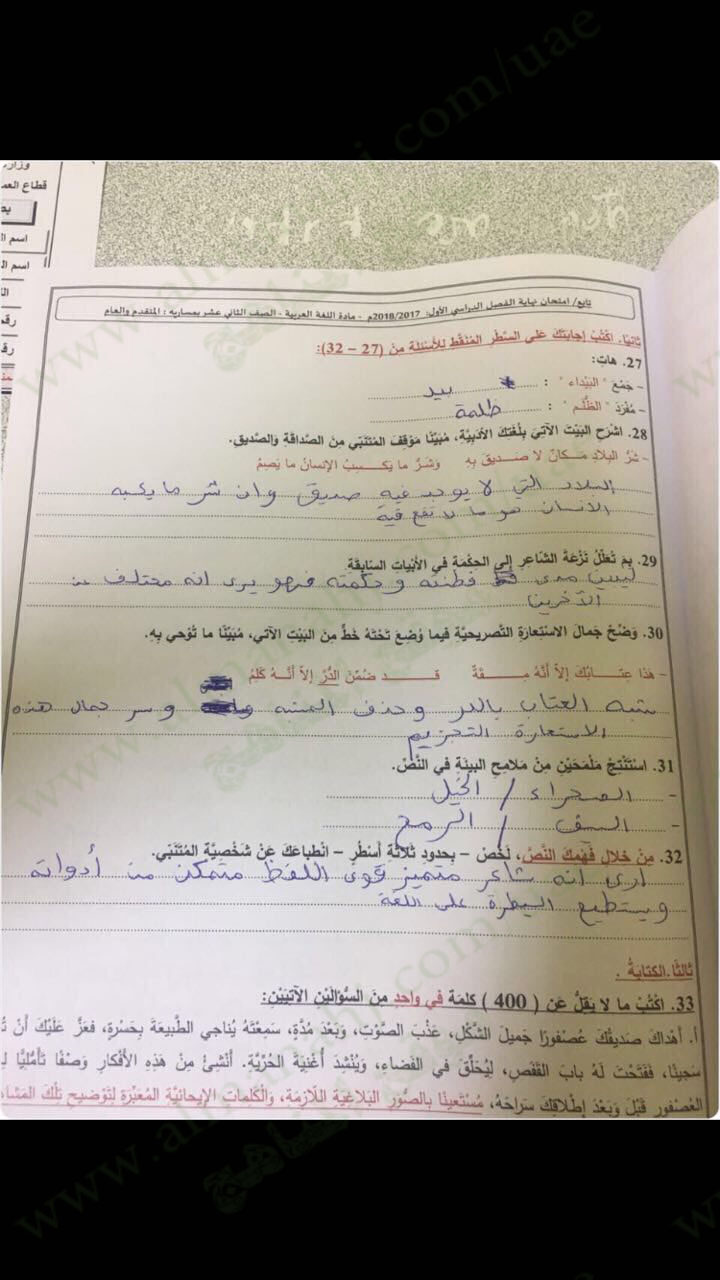 www.almanahj.com/uae
وزارة
قطاع العم
اسم ال
اسم ال
رقم
رقم
تابع/ امتحان نهاية الفصل الدراسي الأول: 2018/2017م - مادة اللغة العربية - الصف الثاني عشر بمساريه : المتقدم والعام
ثانيًا. اكْتُبْ إجابتكَ على السّطْرِ المُنَقّطِ للأسئلة مِنْ (27 – 32):
27. هاتِ:
- جَمْعَ "البَيْداء" : بيد
- مُفْرَدَ "الظُّلَم" : ظلمة
28. اشْرَحِ البَيْتَ الآتِيَ بِلُغَتكَ الأدَبِيَّةِ، مُبَيِّنًا مَوْقِفَ المُتَنَبّي مِنَ الصداقَةِ والصديقِ.
- شَرُّ البِلادِ مَكانٌ لا صَديقَ بِهِ وَشَرُّ ما يَكسِبُ الإنسانُ ما يَصِمُ
البلاد التي لا يوجد فيه صديق وان شر ما يكسبه
الأنسان هو ما لا نفع فية
29. بِمَ تُعَلّلُ نَزْعَةَ الشّاعِرِ إلى الحِكْمَةِ في الأبْياتِ السّابِقَةِ.
ليبين مدى فطنته و حكمته فهو يرى انه مختلف عن
الآخرين
30. وَضّحْ جَمالَ الاسْتِعارَةِ التّصريحيَّةِ فيما وُضِعَ تَحْتَهُ خَطٌّ مِنَ البَيْتِ الآتي، مُبَيِّنًا ما تُوْحي بِهِ.
- هَذا عِتابُكَ إلاّ أنَّهُ مِقَةٌ قد ضُمِّنَ الدُّرَّ إلاّ أنَّهُ كَلِمُ
شبه العتاب بالدر وحذف المشبه وسر جمال هذه
الاستعارة التجزيم
31. اسْتَنْتِجْ مَلْمَحَيْنِ مِنْ مَلامِحِ البيئَةِ في النَّصِّ.
- الصحراء / الخيل
- السف / الرمح
32. مِنْ خِلالِ فَهْمِكَ النَّصَّ، لَخّصْ – بِحدودِ ثَلاثَةِ أسْطُرٍ – انْطِباعَكَ عَنْ شَخْصِيَّةِ المُتَنَبّي.
ارى انه شاعر متميز قوى اللفظ متمكن من أدواته
ويستطيع السيطرة على اللغة
ثالثًا.الكتابَةُ .
33. اكْتُبْ ما لا يَقِلُّ عَنِ ( 400 ) كَلِمَة في واحِدٍ مِنَ السُّؤالَيْنِ الآتِيَيْنِ:
أ. أهْداكَ صَديقُكَ عُصْفورًا جَميلَ الشَّكْلِ، عَذْبَ الصَّوْتِ، وَبَعْدَ مُدَّةٍ، سَمِعْتَهُ يُناجي الطَّبيعَةَ بِحَسْرَةٍ، فَعَزَّ عَلَيْكَ أنْ
سَجينًا، فَفَتَحْتَ لَهُ بابَ القَفَصِ، لِيُحَلِّقَ في الفَضاءِ، وَيُنْشِدَ أُغْنِيَةَ الحُرِّيَّةِ. أنْشِئْ مِنْ هَذِهِ الأفْكارِ وَصْفًا تَأمُّلِيًّا
العُصْفورِ قَبْلَ وَبَعْدَ إطْلاقِكَ سَراحَهُ، مُسْتَعينًا بالصُّوَرِ البَلاغِيَّةِ اللّازِمَةِ، وَالكَلِماتِ الإيحائِيَّةِ المُعَبِّرَةِ لِتَوْضيحِ تِلْكَ